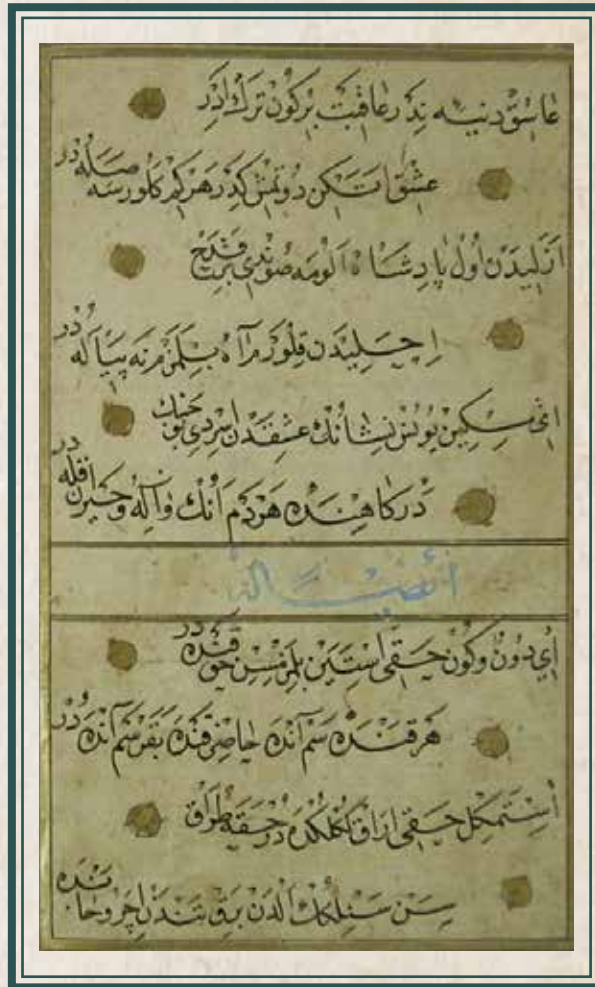 عاشق دنيه ندر عاقبت بر كون ترك ادر
عشق اتكن دوتمش كدر هر كم كلورسه صله در
ازليدن اول پادشاه الومه صوندي بر قدح
اچليدن قلورم آه بلمزم نه پياله در
مسكين يونس نشانك عشقدن اسردي
دركاهنده هردم انك واله و حيران در
ايضا له
اي دون وكون حقى استين بلمزمسن حق قنده در
هر قنده سم آنده حاضر قنده بقرسم آنده در
استمكل حقى اراق كلكده در حقه طراق
سن سنلكك الدن برق تندن اچرو جانده